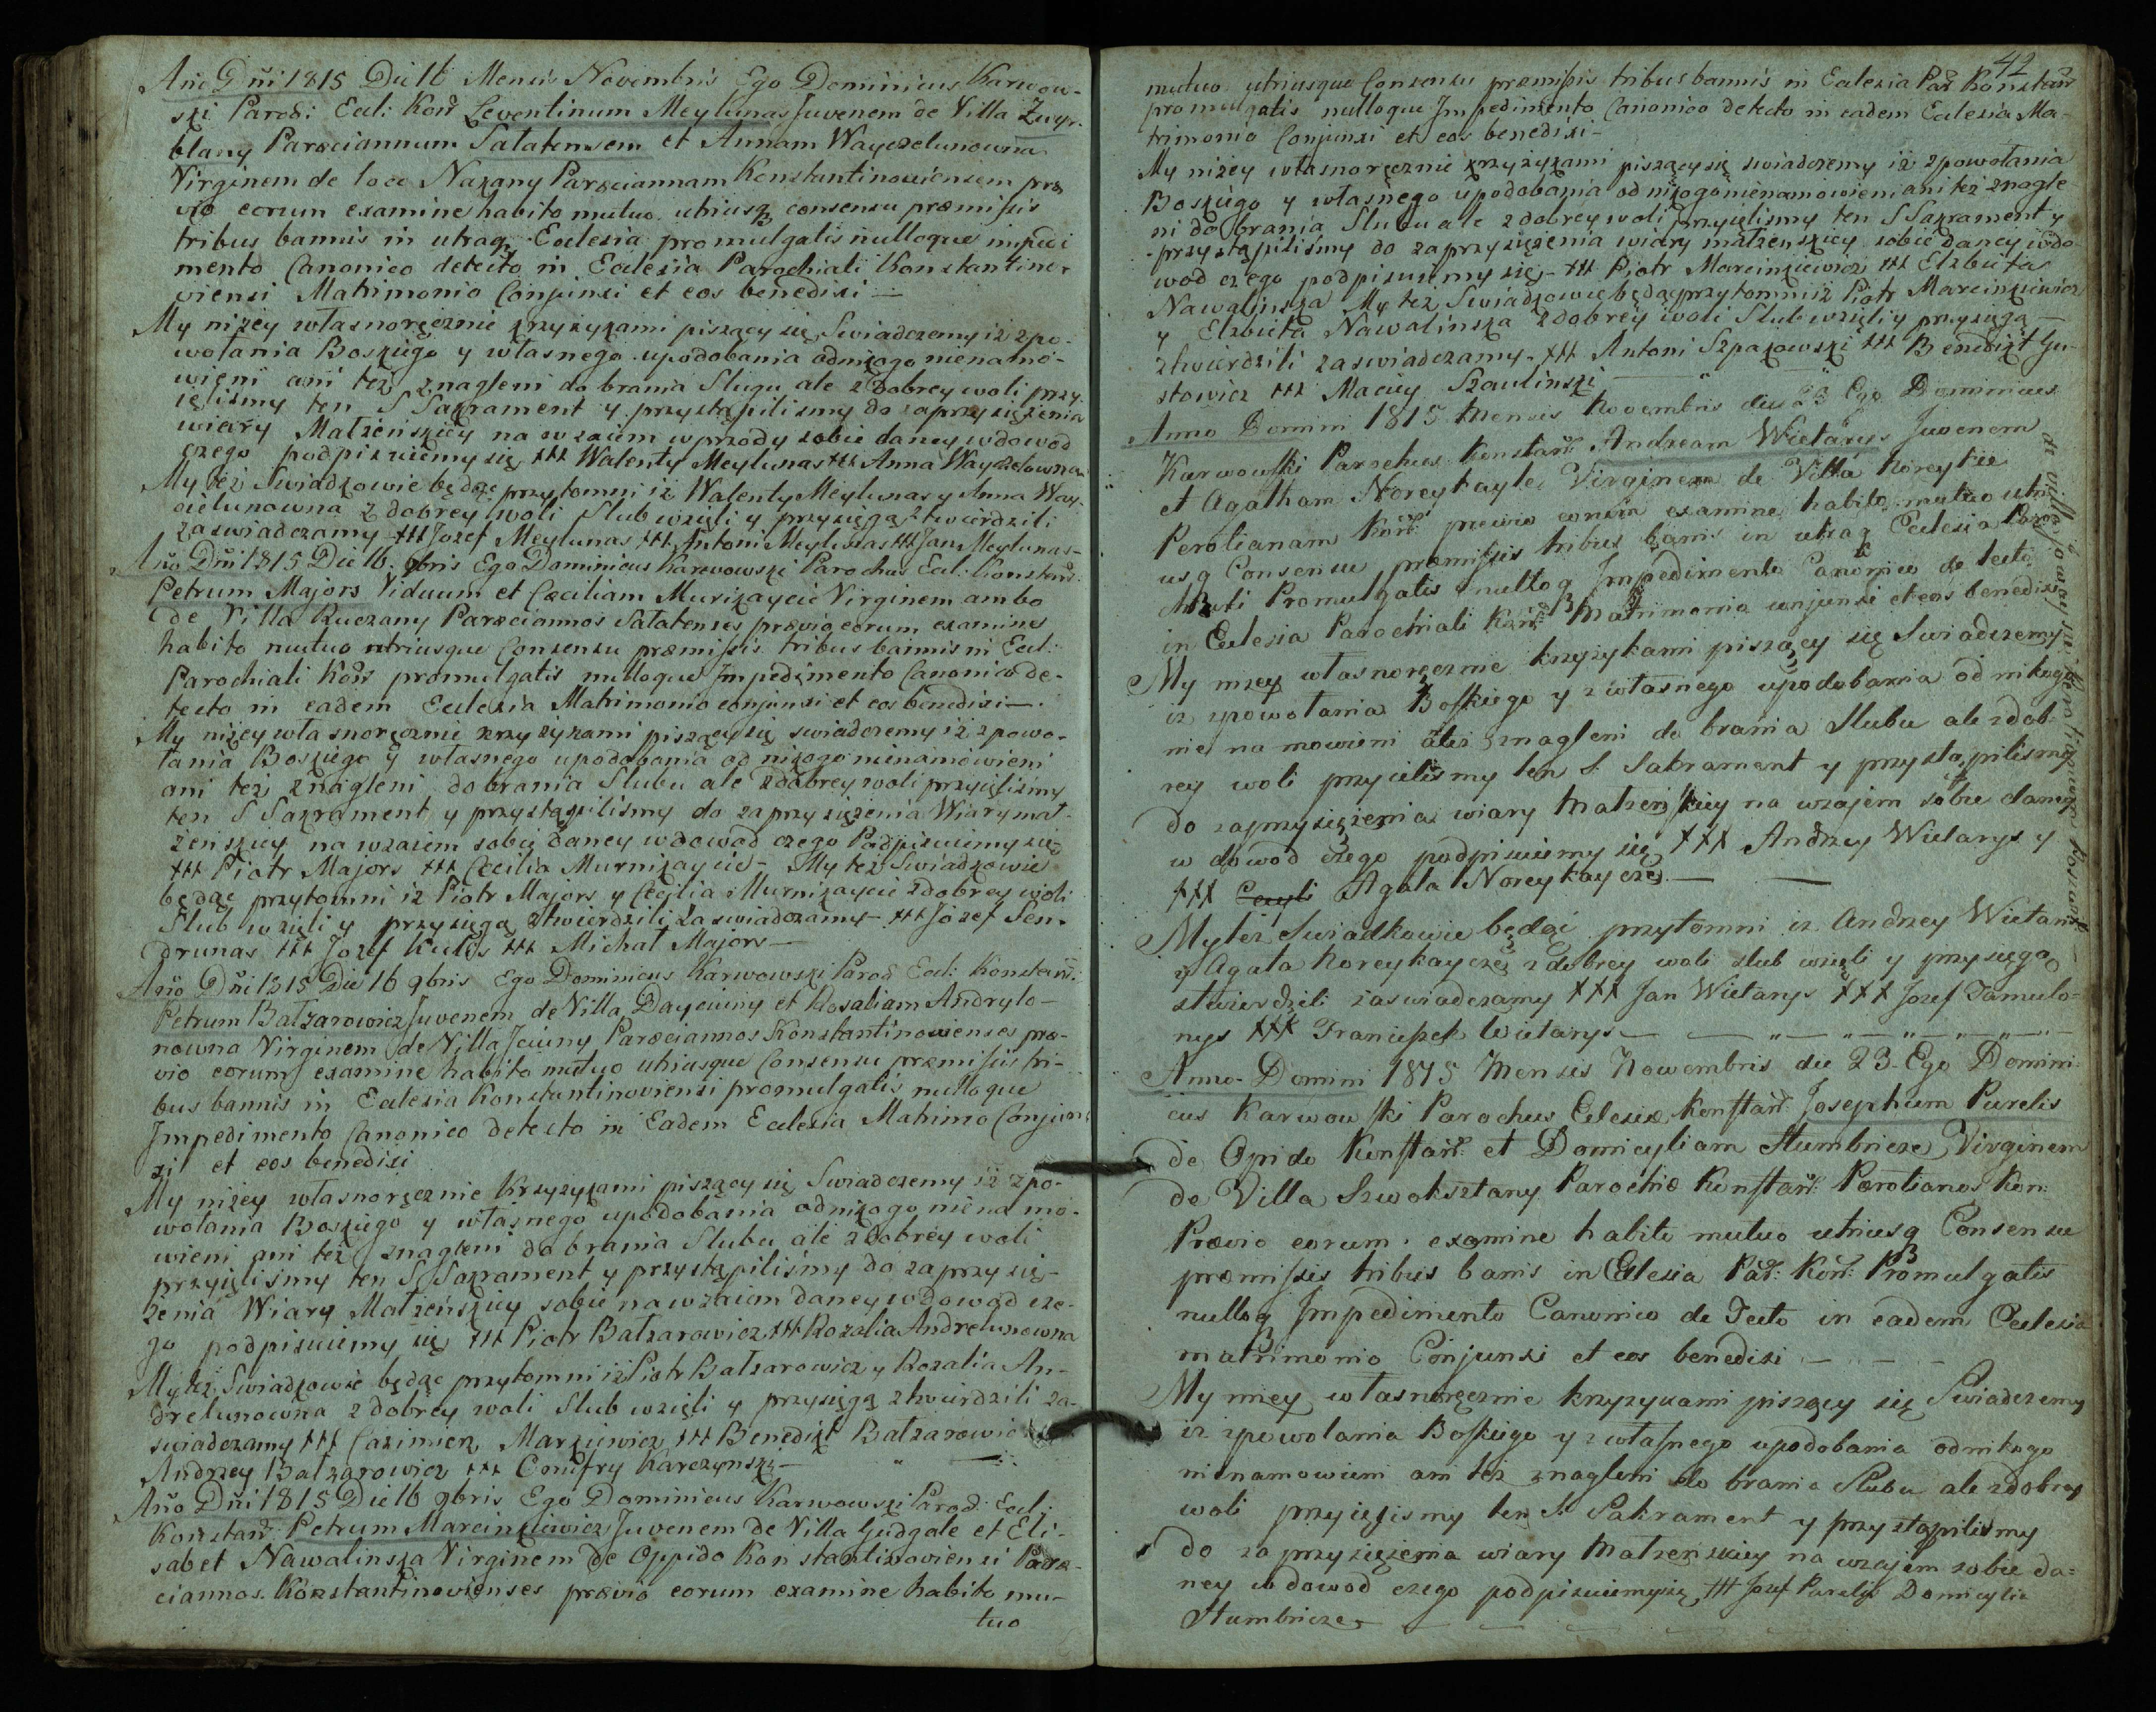 Ano Dni 1815 Die 16 Mensis Novembris Ego Dominicus Karwow-
ski Paroch: Eccl: Konst Leventinum Meylunas Juvenem de Villa Zwyr-
blany Paraeciannum Salatensem et Annam Wayczelunowna
Virginem de loco Nazany Paraeciannam Konstantinowiensem prae
vio eorum examine habito mutuo utriusq consensu praemissis
tribus bannis in utraq Ecclesia promulgatis nulloque impedi
mento Canonico detecto in Ecclesia Parochiali Konstantino-
viensi Matrimonio Conjunxi et eos benedixi —
My niżey własnoręcznie krzyżykami piszący się Swiadczemy iż z po-
wołania Boskiego y własnego upodobania od nikogo nienamo-
wieni ani też znagleni do brania Slugu ale z dobrey woli przy
ięliśmy ten S Sakrament y przystąpiliśmy do zaprzysiężenia
wiary Małżeńskiey na wzaiem wprzody sobie daney wdowod
czego podpisuiemy się +++ Walenty Meylunas +++ Anna Wayczelowna
My też Swiadkowie będąc przytomni iż Walenty Meylunas y Anna Way-
cielunowna z dobrey woli Slub wzieli y przysięgą ztwierdzili
zaswiadczamy +++ Jozef Meylunas +++ Antoni Meylunas +++ Jan Meylunas -
Ano Dni 1815 Die 16 9bris Ego Dominicus Karwowski Parochus Eccl: Konstan:
Petrum Majors Viduum et Caeciliam Murikaycie Virginem ambo
de Villa Ruczany Paraeciannos Salatenses praevio eorum examine
habito mutuo utriusque Consensu praemissis tribus bannis in Eccl:
Parochiali Konst promulgatis nulloque Impedimento Canonico de-
tecto in eadem Ecclesia Matrimonio conjunxi et eos benedixi —
My niżey własnoręcznie krzyżykami piszący się swiadczemy iż z powo-
łania Boskiego y własnego upodobania od nikogo nienamowieni
ani też znagleni do brania Slubu ale z dobrey woli przyięliśmy
ten S Sakrament y przystąpiliśmy do zaprzysiężenia Wiary mał-
żeńskiey na wzaiem sobie daney wdowod czego Podpisuiemy się
+++ Piotr Majors +++ Cecilia Murnikaycie - My też Swiadkowie
będąc przytomni iż Piotr Majors y Cecilia Murnikaycie z dobrey woli
Slub wzieli y przysięgą ztwierdzili zaswiadczamy - +++ Józef Sen-
drunas +++ Jozef Kulis +++ Michał Majors —
Ano Dni 1815 Die 16 9bris Ego Dominicus Karwowski Paroch Eccl: Konstan:
Petrum Bałzarowicz Juvenem de Villa Dayciuny et Rosaliam Andrylo-
nowna Virginem de Villa Jciuny Paraeciannos Konstantinowienses prae-
vio eorum examine habito mutuo utriusque Consensu praemissis tri-
bus bannis in Ecclesia Konstantinoviensi promulgatis nulloque
Impedimento Canonico detecto in Eadem Ecclesia Matrimo Conjun
xi et eos benedixi
My niżey własnoręcznie Krzyżykami piszący się Swiadczemy iż z po-
wołania Boskiego y własnego upodobania od nikogo niena mo-
wieni ani też znagleni do brania Slubu ale z dobrey woli
przyięliśmy ten S Sakrament y przystąpiliśmy do zaprzysię-
żenia Wiary Małżeńskiey sobie na wzaiem daney wdowod cze-
go podpisuiemy się +++ Piotr Bałzarowicz +++ Rozalia Andrelunowna
My też Swiadkowie będąc przytomni iż Piotr Bałzarowicz y Rozalia An-
drelunowna z dobrey woli Slub wzieli y przysięgą ztwierdzili za-
swiadczamy +++ Cazimierz Markiewicz +++ Benedikt Bałzarowicz
Andrzey Bałzarowicz +++ Onufry Karczynski —
Ano Dni 1815 Die 16 9bris Ego Dominicus Karwowski Paroch: Eccl:
Konstan: Petrum Marcinkiewicz Juvenem de Villa Gudgale et Eli-
sabet Nawalinska Virginem de Oppido Konstantinoviensi Parae-
ciannos Konstantinovienses praevio eorum examine habito mu-
tuo
42
mutuo utriusque Consensu praemissis tribus bannis in Ecclesia Par Konstan
promulgatis nulloque Impedimento Canonico detecto in eadem Ecclesia Ma-
trimonio Conjunxi et eos benedixi —
My niżey własnoręcznie krzyżykami piszący się swiadczemy iż z powołania
Boskiego y własnego upodobania od nikogo nienamowieni ani też znagle
ni do brania Slubu ale z dobrey woli przyięliśmy ten S Sakrament y
przystąpiliśmy do zaprzysiężenia wiary małżenskiey sobie daney wdo
wod czego podpisuiemy się - +++ Piotr Marcinkiewicz +++ Elzbieta
Nawalinska My też Swiadkowie będąc przytomni iż Piotr Marcinkiewicz
y Elzbieta Nawalinska z dobrey woli Slub wzieli y przysięgą —
ztwierdzili zaswiadczamy - +++ Antoni Szpakowski +++ Benedikt Gu-
stowicz +++ Maciey Szaulinski —
Anno Domini 1815 Mensis Novembris die 23 Ego Dominicus
Karwowski Parochus Konstan Andream Wietarys Juvenem
de villa
et Agatham Noreykayte Virginem de Villa Noreykie
Parotianam Kon: previo eorum examine habito mutuo utri
usq Consensu praemissis tribus banis in utraq Ecclesia Paro
chiali Promulgatis nulloq Impedimento Canonico de tecto
in Eclesia Parochiali Kon: Matrimonio conjunxi et eos benedixi
My niżey własnoręcznie krzyżykami piszący się Swiadczemy
iż z powołania Boskiego y z własnego upodobania od nikogo
nie na mowieni ani też znagleni do brania Slubu ale z dob
rey woli przyielismy ten S. Sakrament y przystąpilismy
do zaprzysiężenia wiary Małżeńskiey na wzajem sobie daney
w dowod czego podpisuiemy się +++ Andrzey Wietarys y
+++ Agata Noreykayczę —
My też Swiadkowie będąc przytomni iz Andrzey Wietarys
y Agata Noreykayczę z dobrey woli slub wzieli y przysięgą
ztwierdzili zaswiadczamy +++ Jan Wietarys +++ Jozef Tamulo=
nys +++ Franciszek Wietarys —
Anno Domini 1815 Mensis Nowembris die 23 Ego Domini
cus Karwowski Parochus Eclesiae Konstan: Josephum Purelis
de Opido Konstan: et Domicyliam Stumbricze Virginem
de Villa Szwoksztany Parochiae Konstan: Parotianos Kon:
Praevio eorum examine habito mutuo utriusq Consensu
praemissis tribus banis in Eclesia Par: Kon: Promulgatis
nulloq Impedimento Canonico de Tecto in eadem Ecclesia
matrimonio Conjunxi et eos benedixi —
My niżey własnoręcznie krzyżykami piszący się Swiadczemy
iz z powołania Boskiego y z własnego upodobania od nikogo
nienamowieni ani też znagleni do brania Slubu ale z dobrey
woli przyięlismy ten S. Sakrament y przystąpilismy
do zaprzysiężenia wiary Małżeńskiey na wzajem sobie da=
ney w dowod czego podpisuiemy się +++ Jozef Purelis Domicylia
Stumbricze —